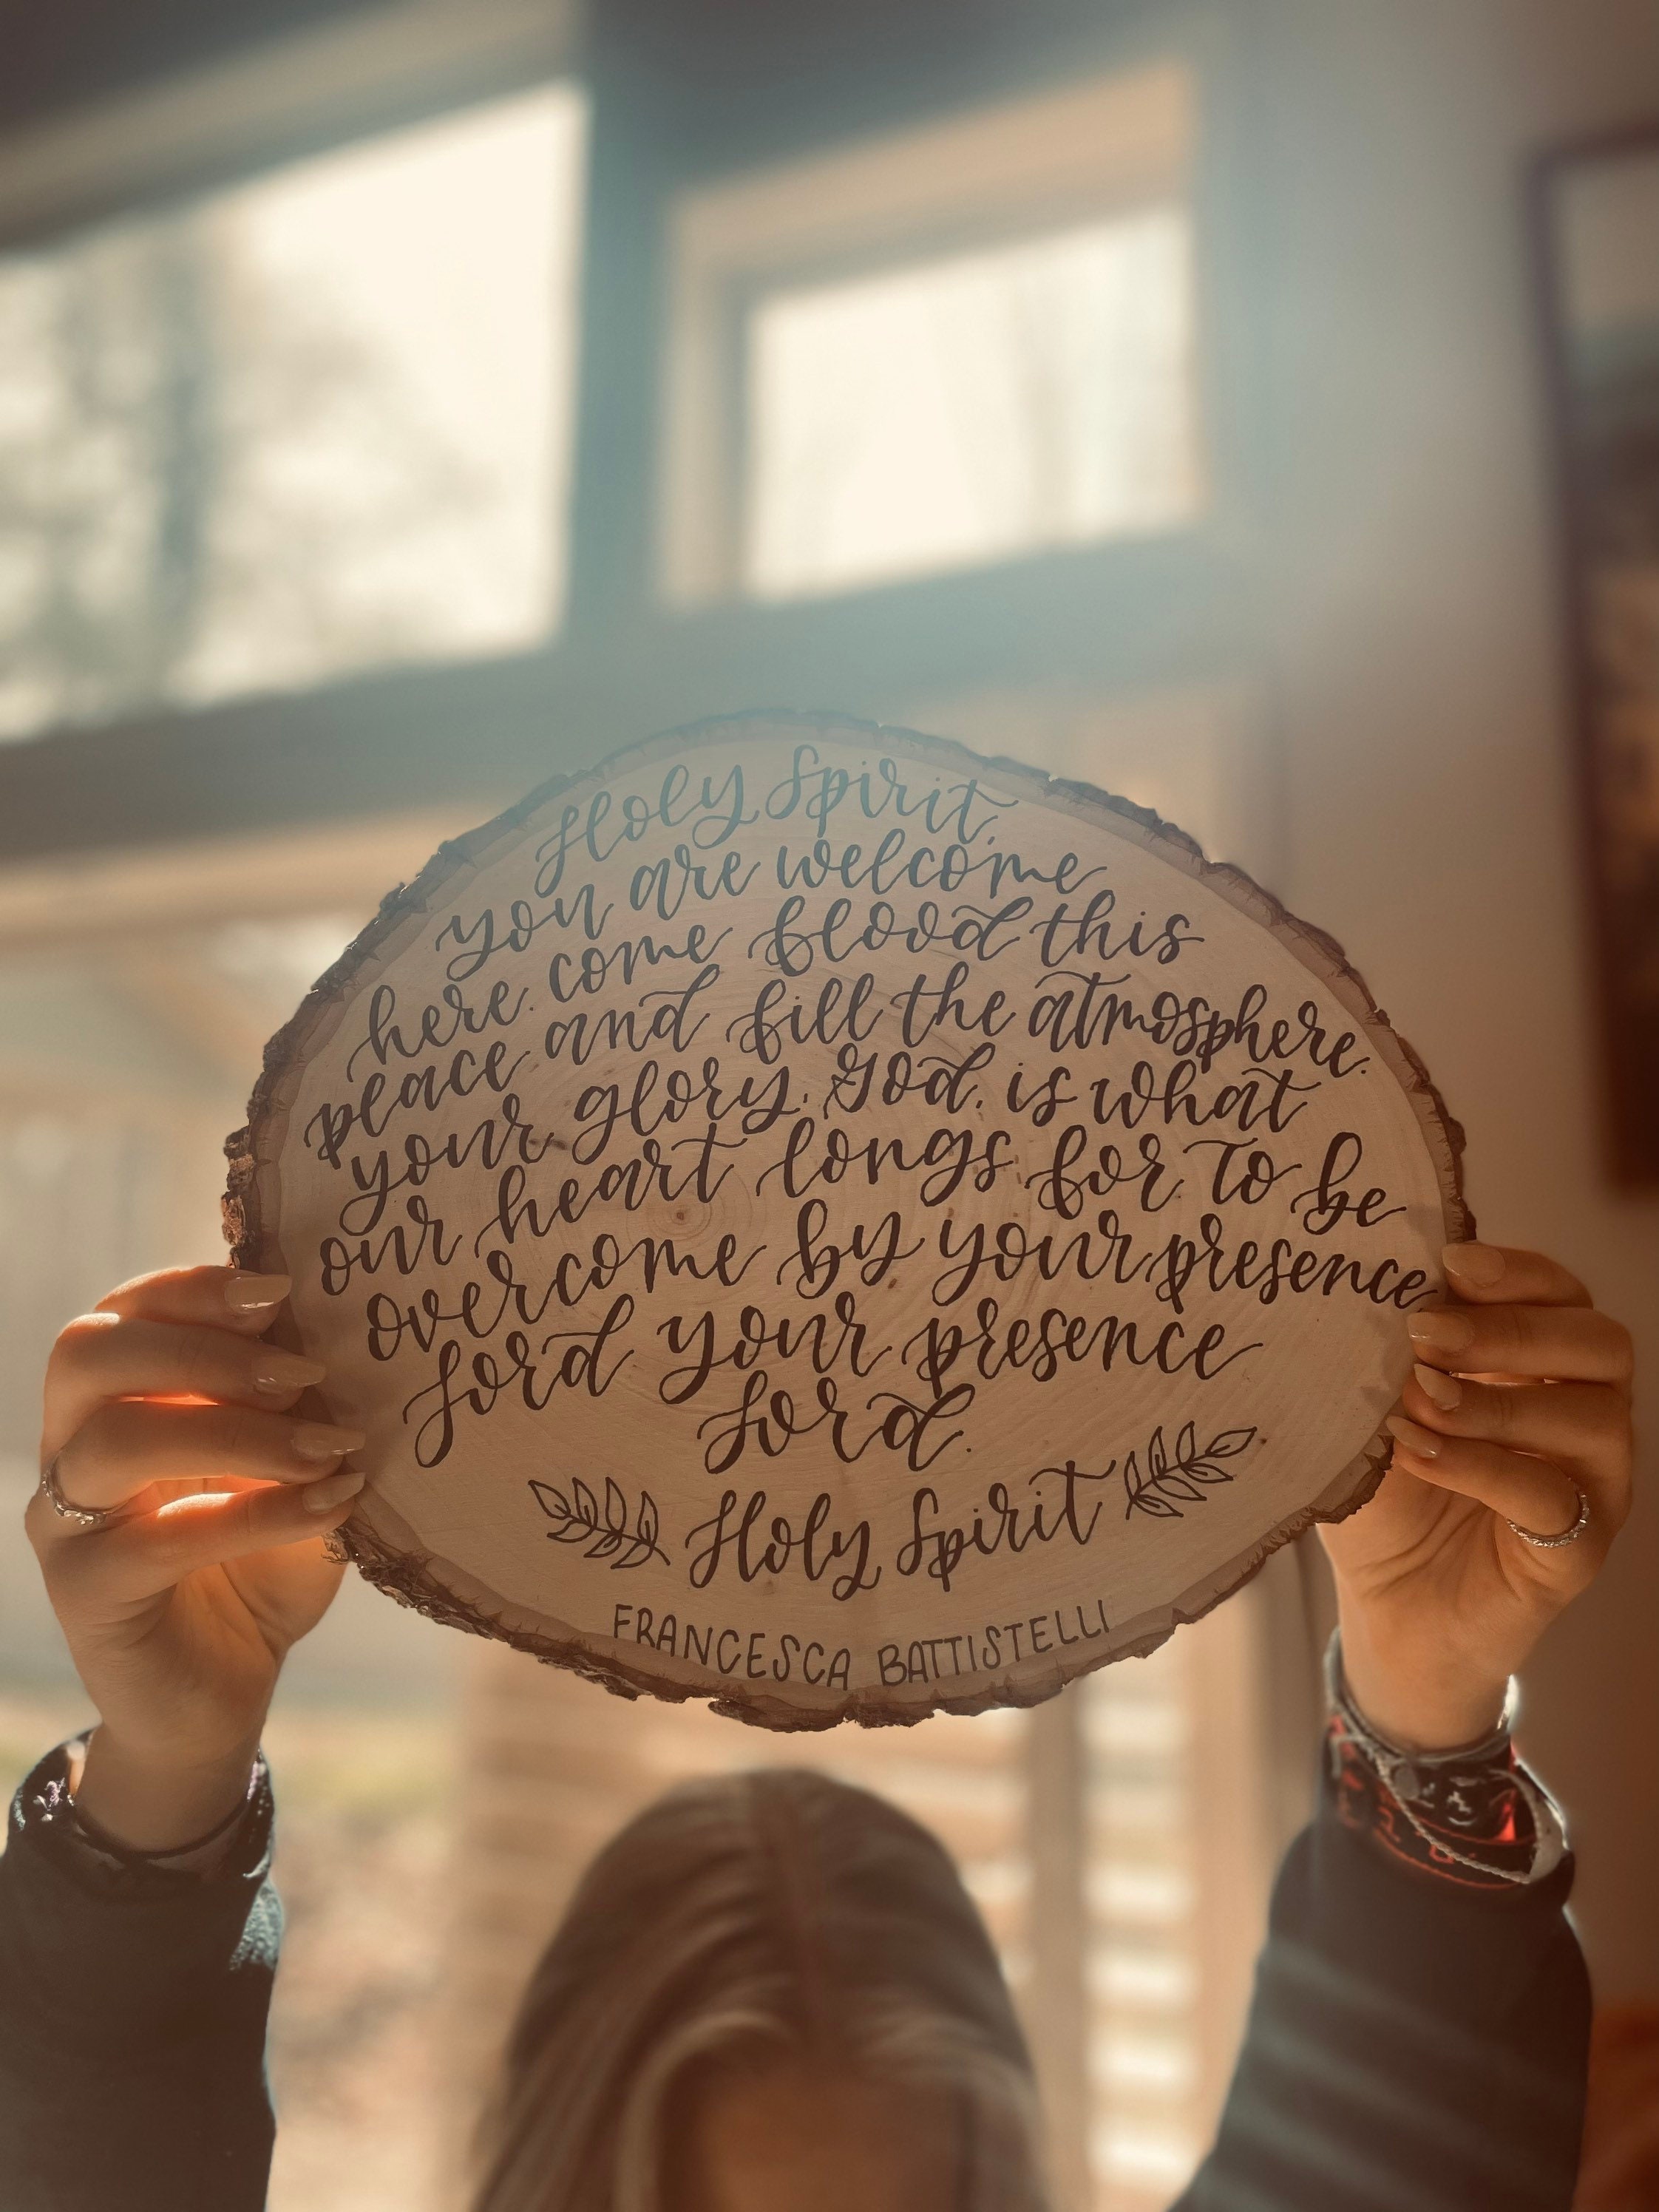 Holy Spirit,
you are welcome
here. come flood this
place and fill the atmosphere.
your glory, God, is what
our heart longs for to be
overcome by your presence
Lord your presence
Lord.
Holy Spirit
FRANCESCA BATTISTELLI